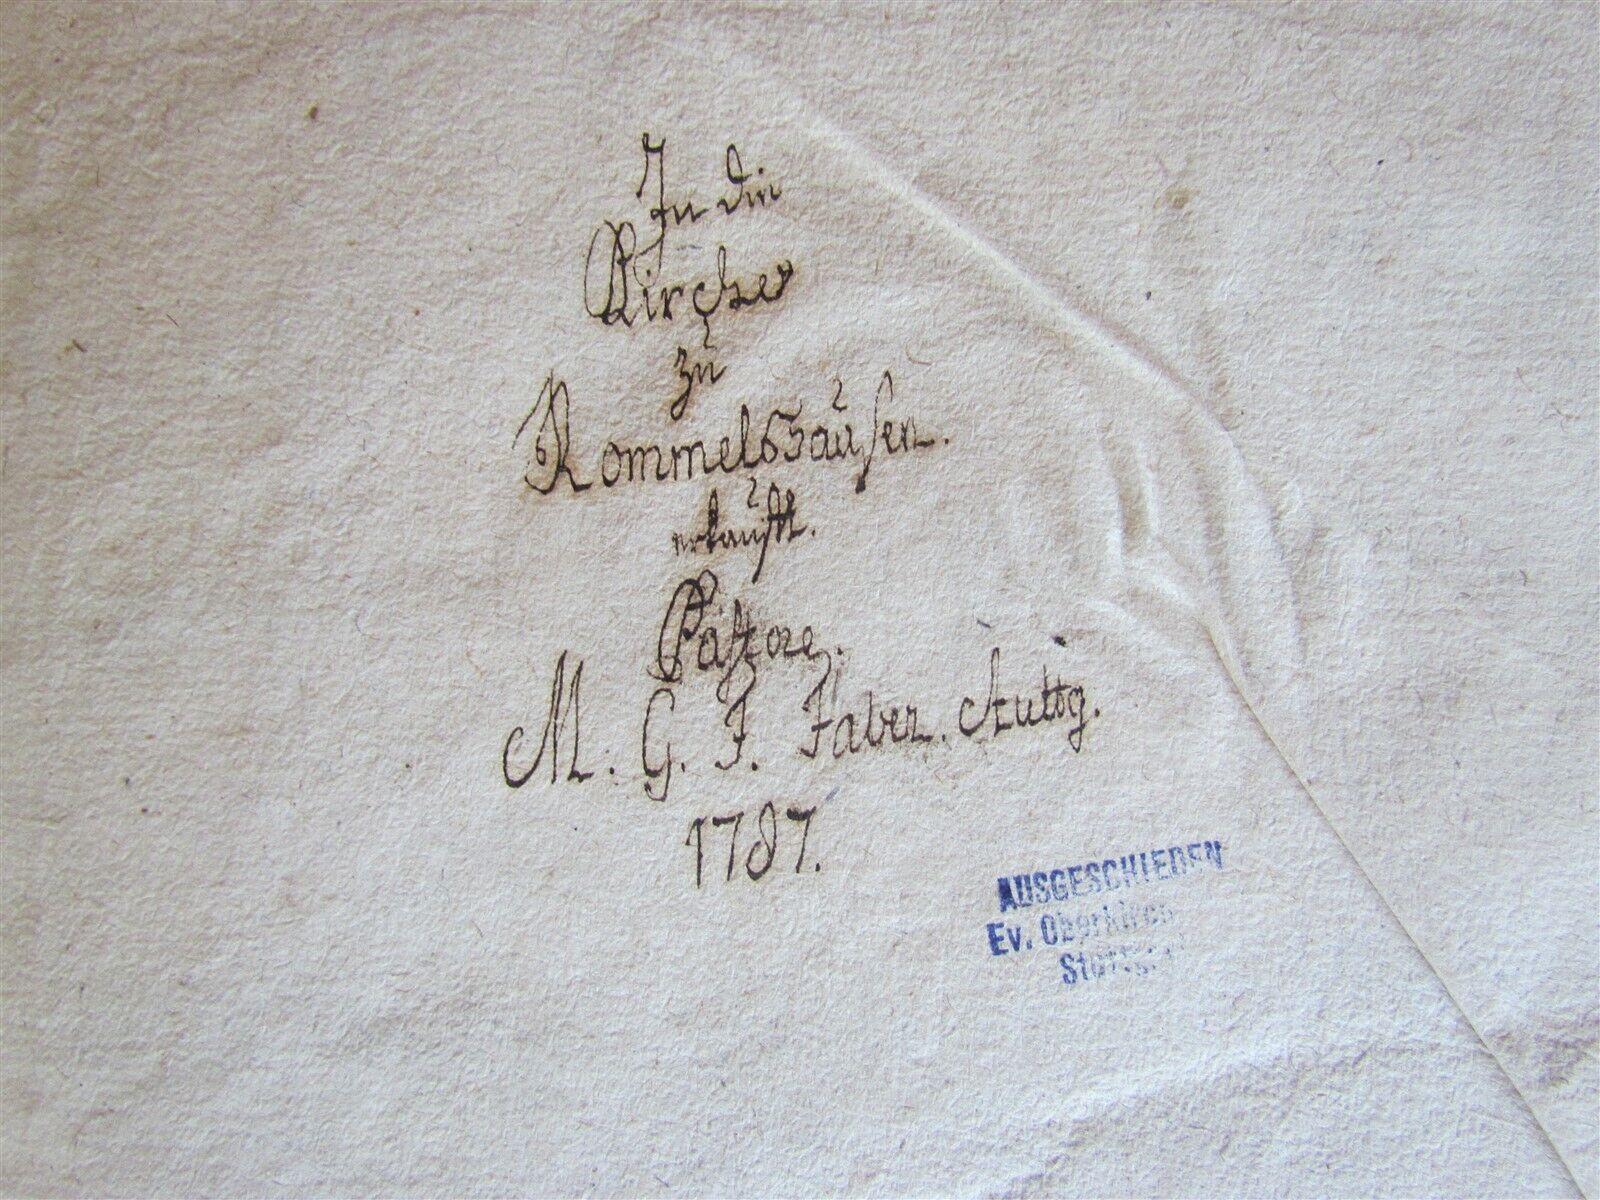 In die
Kirche
zu
Rommelshausen.
erkaufft.
Pastore.
M. G. F. Faber. Stuttg.
1787.
AUSGESCHIEDEN
Ev. Oberkirch
Stuttgart